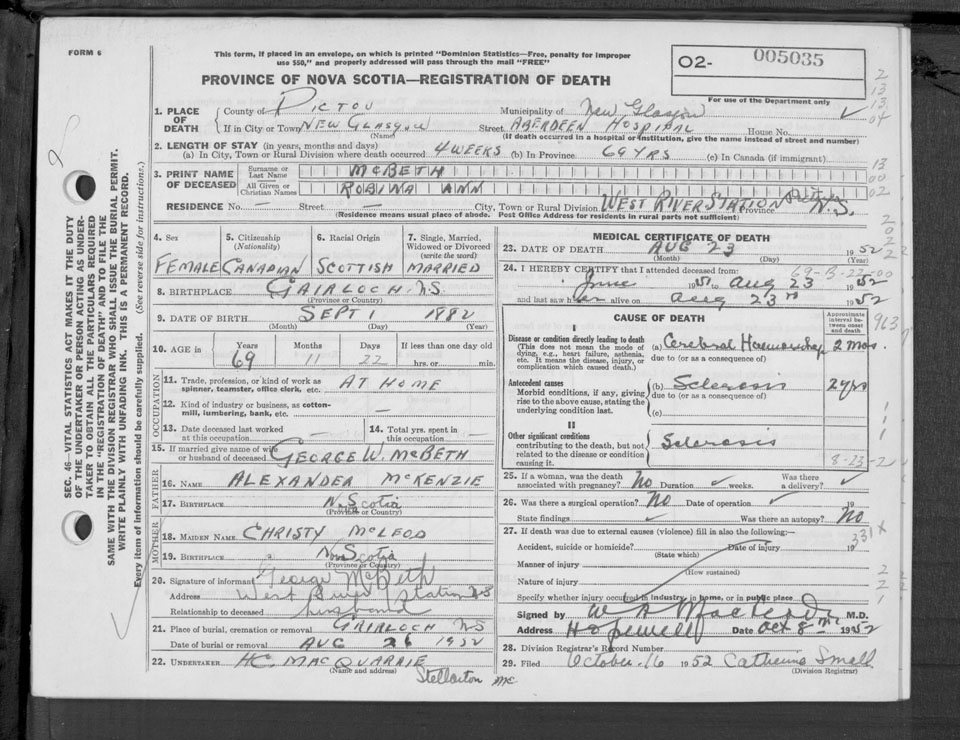 FORM 6
This form, if placed in an envelope, on which is printed "Dominion Statistics—Free, penalty for improper
use $50," and properly addressed will pass through the mail "FREE"
02- 005035
For use of the Department only
PROVINCE OF NOVA SCOTIA—REGISTRATION OF DEATH
1. PLACE OF DEATH
County of PICTOU Municipality of New Glasgow
If in City or Town NEW GLASGOW Street ABERDEEN HOSPITAL House No.
(Name) (If death occurred in a hospital or institution, give the name instead of street and number)
2. LENGTH OF STAY (in years, months and days)
(a) In City, Town or Rural Division where death occurred 4 WEEKS (b) In Province 69 YRS (c) In Canada (if immigrant)
3. PRINT NAME OF DECEASED
Surname or Last Name MCBETH
All Given or Christian Names ROBINA ANN
RESIDENCE No. — Street — City, Town or Rural Division WEST RIVER STATION Province N.S.
(Residence means usual place of abode. Post Office Address for residents in rural parts not sufficient)
4. Sex FEMALE
5. Citizenship (Nationality) CANADIAN
6. Racial Origin SCOTTISH
7. Single, Married, Widowed or Divorced (write the word) MARRIED
8. BIRTHPLACE GAIRLOCH NS
(Province or Country)
9. DATE OF BIRTH SEPT 1 1882
(Month) (Day) (Year)
10. AGE in Years 69 Months 11 Days 22 If less than one day old hrs. or min.
OCCUPATION
11. Trade, profession, or kind of work as spinner, teamster, office clerk, etc. AT HOME
12. Kind of industry or business, as cotton-mill, lumbering, bank, etc. —
13. Date deceased last worked at this occupation —
14. Total yrs. spent in this occupation —
15. If married give name of wife or husband of deceased GEORGE W. MCBETH
FATHER
16. NAME ALEXANDER MCKENZIE
17. BIRTHPLACE N. Scotia
(Province or Country)
MOTHER
18. MAIDEN NAME CHRISTY MCLEOD
19. BIRTHPLACE N. Scotia
(Province or Country)
20. Signature of informant George McBeth
Address West River Station NS
Relationship to deceased husband
21. Place of burial, cremation or removal GAIRLOCH NS
Date of burial or removal AUG 26 1952
22. UNDERTAKER H.C. MACQUARRIE
Stellarton
MEDICAL CERTIFICATE OF DEATH
23. DATE OF DEATH AUG 23 1952
(Month) (Day) (Year)
24. I HEREBY CERTIFY that I attended deceased from:
June 1951 to Aug 23 1952
and last saw her alive on Aug 23rd 1952
CAUSE OF DEATH
Approximate interval between onset and death
I
Disease or condition directly leading to death
(This does not mean the mode of dying, e.g., heart failure, asthenia, etc. It means the disease, injury, or complication which caused death.)
(a) Cerebral Haemorrhage 2 mos.
due to (or as a consequence of)
Antecedent causes
Morbid conditions, if any, giving rise to the above cause, stating the underlying condition last.
(b) Sclerosis 2 yrs
due to (or as a consequence of)
(c)
II
Other significant conditions
contributing to the death, but not related to the disease or condition causing it.
Sclerosis
8-23-2
25. If a woman, was the death associated with pregnancy? No Duration weeks. Was there a delivery?
26. Was there a surgical operation? No Date of operation 19
State findings Was there an autopsy? No
27. If death was due to external causes (violence) fill in also the following:—
Accident, suicide or homicide? Date of injury 19
(State which)
Manner of injury
(How sustained)
Nature of injury
Specify whether injury occurred in industry, in home, or in public place
Signed by W A MacLeod M.D.
Address Hopewell Date Oct 8 1952
28. Division Registrar's Record Number
29. Filed October 16 1952 Catherine Small
(Division Registrar)
963
331 X
SEC. 46—VITAL STATISTICS ACT MAKES IT THE DUTY
OF THE UNDERTAKER OR PERSON ACTING AS UNDER-
TAKER TO OBTAIN ALL THE PARTICULARS REQUIRED
IN THE "REGISTRATION OF DEATH" AND TO FILE THE
SAME WITH THE DIVISION REGISTRAR WHO SHALL ISSUE THE BURIAL PERMIT.
WRITE PLAINLY WITH UNFADING INK. THIS IS A PERMANENT RECORD.
Every item of information should be carefully supplied. (See reverse side for instructions.)